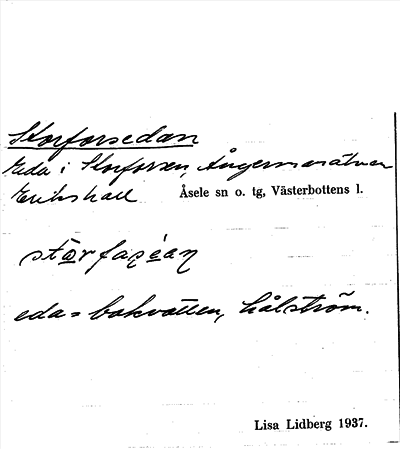 Storforsedan
Eda i Storforsen, Ångermanälven
Erikshall Åsele sn o. tg, Västerbottens l.
eda = bakvatten, hålström.
Lisa Lidberg 1937.